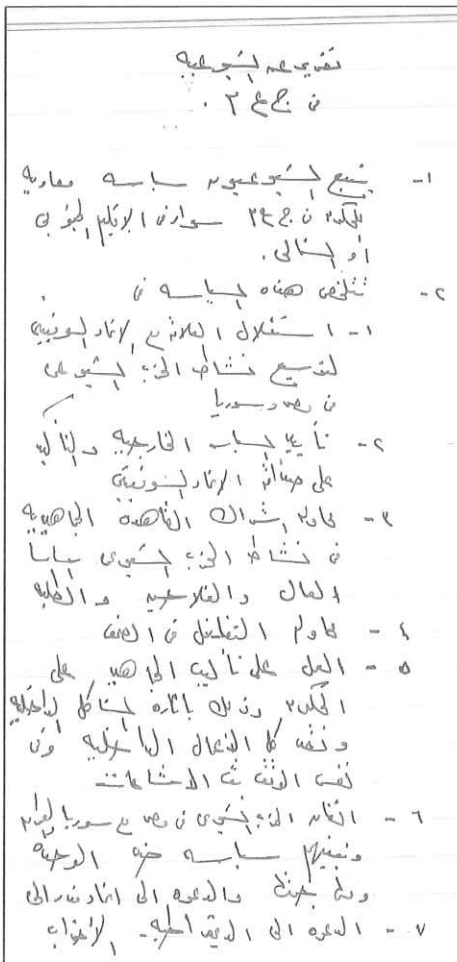 تقدير عن الشيوعية
فى ج ع م .
١- يتبع الشيوعيون سياسة معادية
للحكومة فى ج ع م سواء فى الاقليم الجنوبى
أو الشمالى .
٢- تتلخص هذه السياسة فى
١- استغلال العلاقة مع الاتحاد السوفييتى
لتوسيع نشاط الحزب الشيوعى
فى مصر وسوريا
٢- تأييد السياسة الخارجية والتأكيد
على صداقة الاتحاد السوفييتى
٣- محاولة اشراك القاعدة الجماهيرية
فى نشاط الحزب الشيوعى سياسيا
العمال والفلاحين والطلبة
٤- محاولة التغلغل فى الصحف
٥- العمل على تأليب الجماهير على
الحكومة وذلك باثارة المشاكل الداخلية
ونقد كل الأعمال الداخلية وفى
نفس الوقت بث الاشاعات
٦- اتفاق الحزب الشيوعى فى مصر مع سوريا والعراق
وتبنيهم سياسة ضد الوحدة
والدعوة الى اتحاد فدرالى
٧- الدعوة الى الديمقراطية - الأحزاب